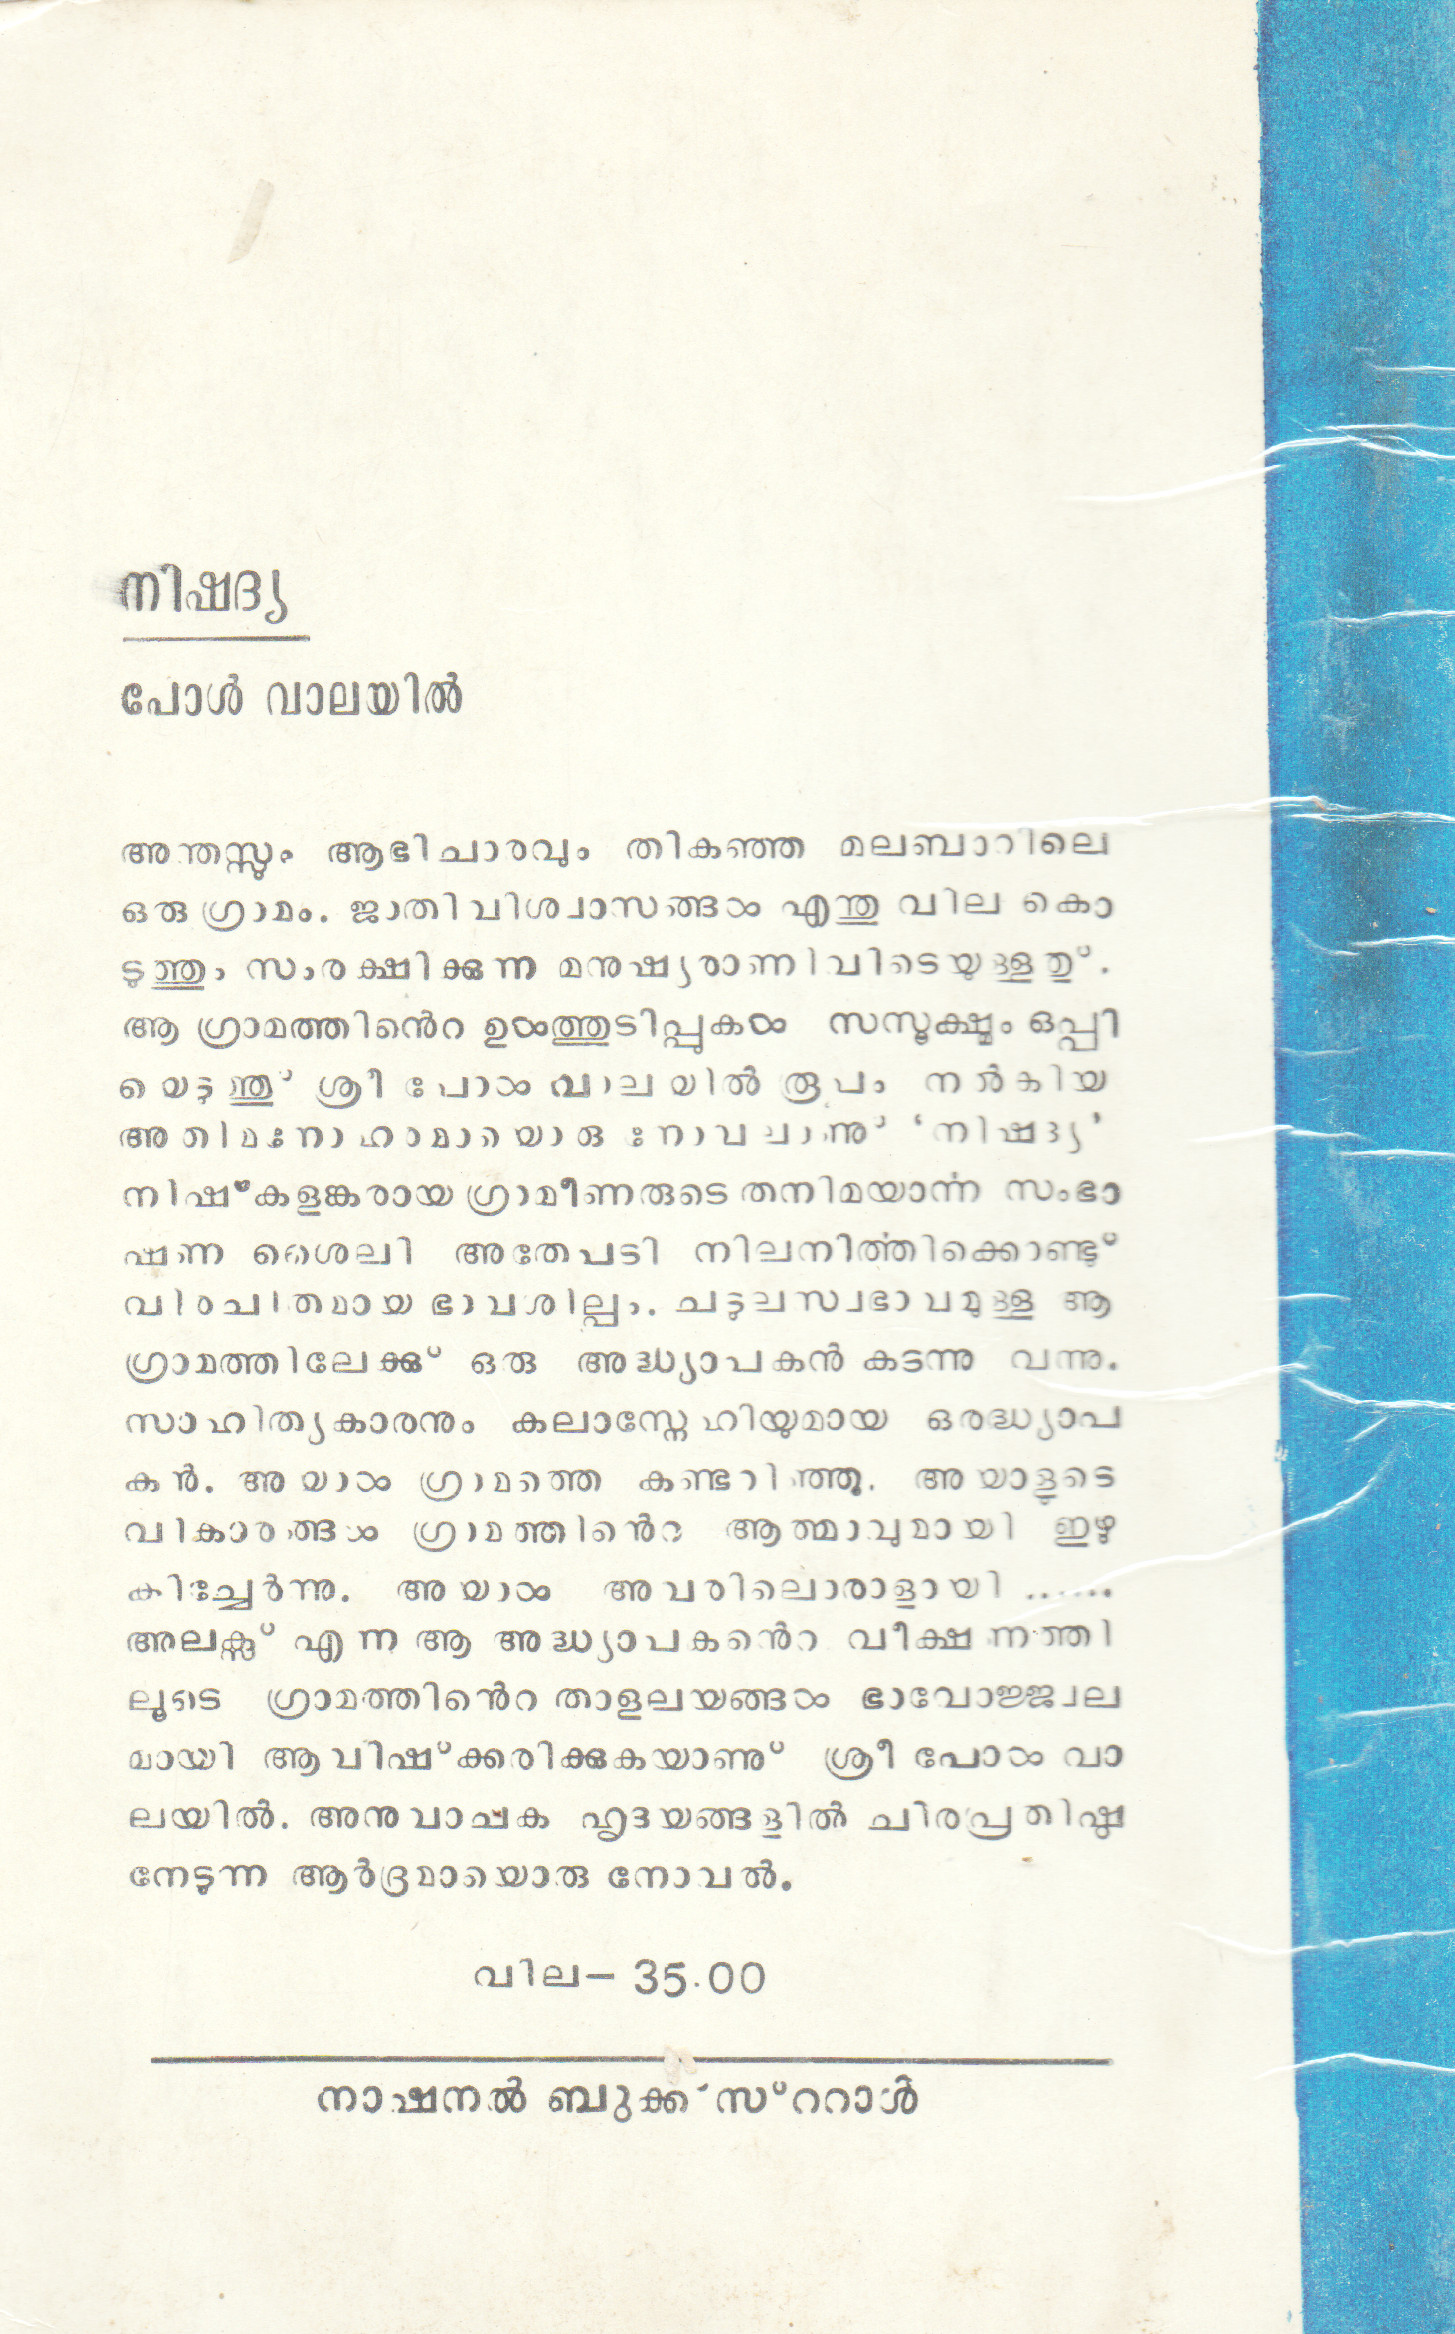 നിഷദ്യ
പോൾ വാലയിൽ
അന്തസ്സും ആഭിചാരവും തികഞ്ഞ മലബാറിലെ
ഒരു ഗ്രാമം. ജാതിവിശ്വാസങ്ങൾ എന്തു വില കൊ
ടുത്തും സംരക്ഷിക്കുന്ന മനുഷ്യരാണിവിടെയുള്ളതു്.
ആ ഗ്രാമത്തിൻെറ ഉൾത്തുടിപ്പുകൾ സസൂക്ഷ്മം ഒപ്പി
യെടുത്തു് ശ്രീ പോൾ വാലയിൽ രൂപം നൽകിയ
അതിമനോഹരമായൊരു നോവലാണു് ‘നിഷദ്യ’
നിഷ്കളങ്കരായ ഗ്രാമീണരുടെ തനിമയാർന്ന സംഭാ
ഷണ ശൈലി അതേപടി നിലനിർത്തിക്കൊണ്ടു്
വിരചിതമായ ഭാവശില്പം. ചടുലസ്വഭാവമുള്ള ആ
ഗ്രാമത്തിലേക്കു് ഒരു അദ്ധ്യാപകൻ കടന്നു വന്നു.
സാഹിത്യകാരനും കലാസ്നേഹിയുമായ ഒരദ്ധ്യാപ
കൻ. അയാൾ ഗ്രാമത്തെ കണ്ടറിഞ്ഞു. അയാളുടെ
വികാരങ്ങൾ ഗ്രാമത്തിൻെറ ആത്മാവുമായി ഇഴു
കിച്ചേർന്നു. അയാൾ അവരിലൊരാളായി ......
അലക്സ് എന്ന ആ അദ്ധ്യാപകൻെറ വീക്ഷണത്തി
ലൂടെ ഗ്രാമത്തിൻെറ താളലയങ്ങൾ ഭാവോജ്ജ്വല
മായി ആവിഷ്ക്കരിക്കുകയാണു് ശ്രീ പോൾ വാ
ലയിൽ. അനുവാചക ഹൃദയങ്ങളിൽ ചിരപ്രതിഷ്ഠ
നേടുന്ന ആർദ്രമായൊരു നോവൽ.
വില– 35.00
നാഷനൽ ബുക്ക് സ്ററാൾ